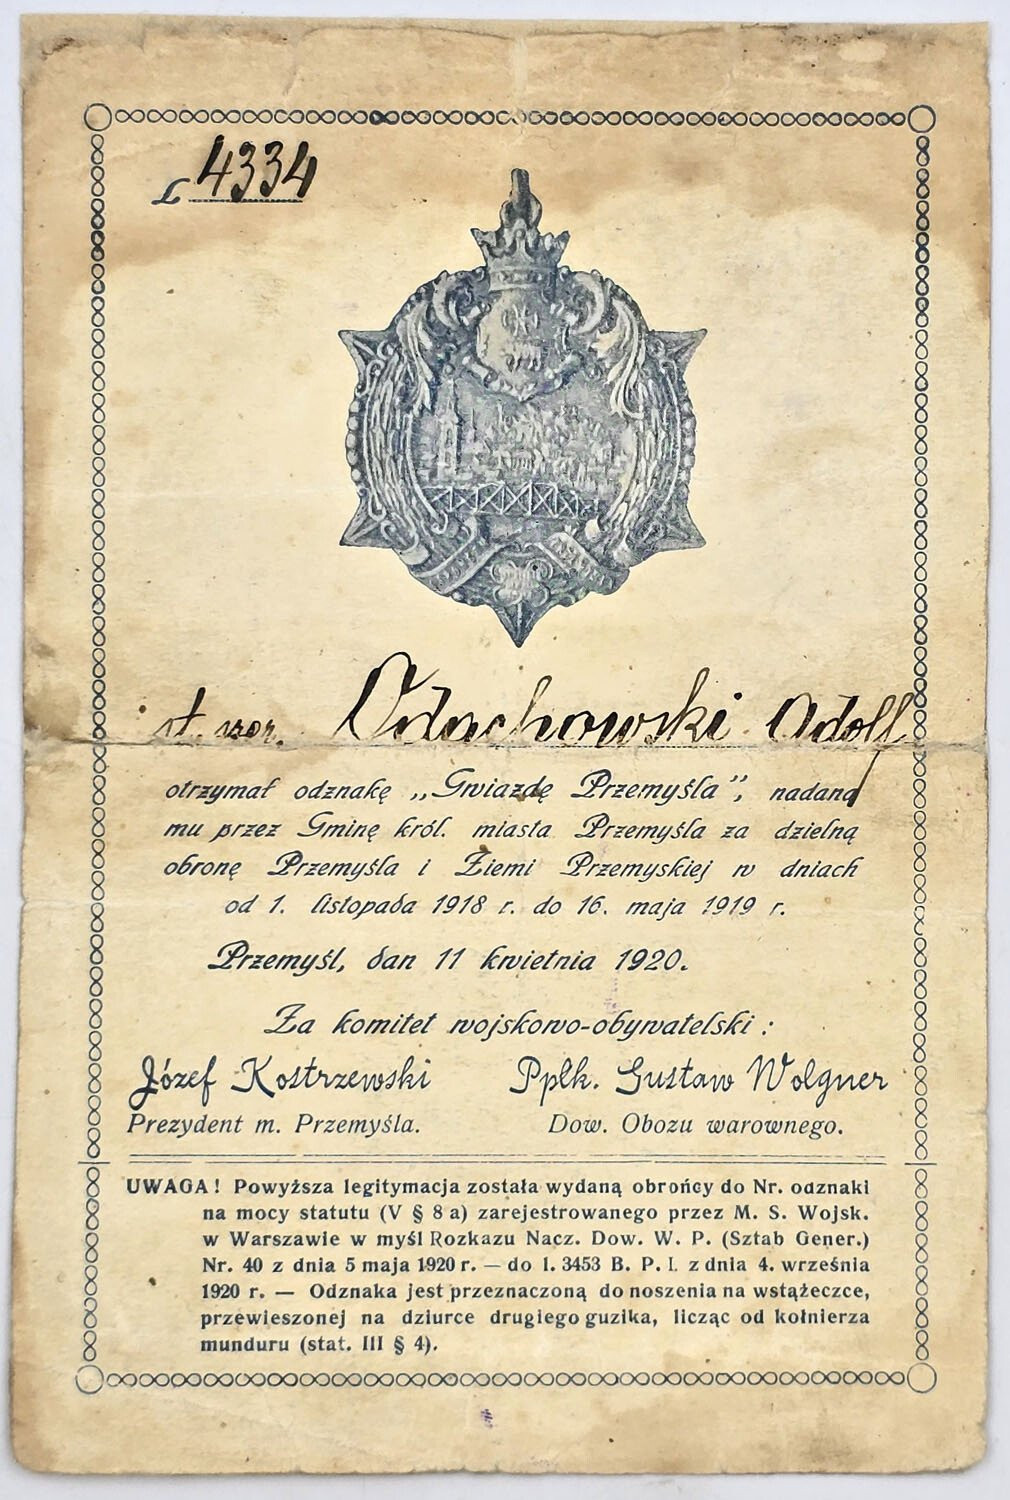 L. 4334
st. żoł. Odachowski Adolf
otrzymał odznakę „Gwiazdę Przemyśla”, nadaną
mu przez Gminę król. miasta Przemyśla za dzielną
obronę Przemyśla i Ziemi Przemyskiej w dniach
od 1. listopada 1918 r. do 16. maja 1919 r.
Przemyśl, dan 11 kwietnia 1920.
Za komitet wojskowo-obywatelski:
Józef Kostrzewski Ppłk. Gustaw Wolgner
Prezydent m. Przemyśla. Dow. Obozu warownego.
UWAGA! Powyższa legitymacja została wydaną obrońcy do Nr. odznaki
na mocy statutu (V § 8 a) zarejestrowanego przez M. S. Wojsk.
w Warszawie w myśl Rozkazu Nacz. Dow. W. P. (Sztab Gener.)
Nr. 40 z dnia 5 maja 1920 r. — do l. 3453 B. P. I. z dnia 4. września
1920 r. — Odznaka jest przeznaczoną do noszenia na wstążeczce,
przewieszonej na dziurce drugiego guzika, licząc od kołnierza
munduru (stat. III § 4).